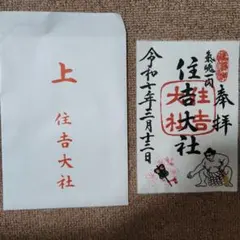 上
住吉大社
奉拝
住吉大社
住吉
大社
令和七年三月十二日